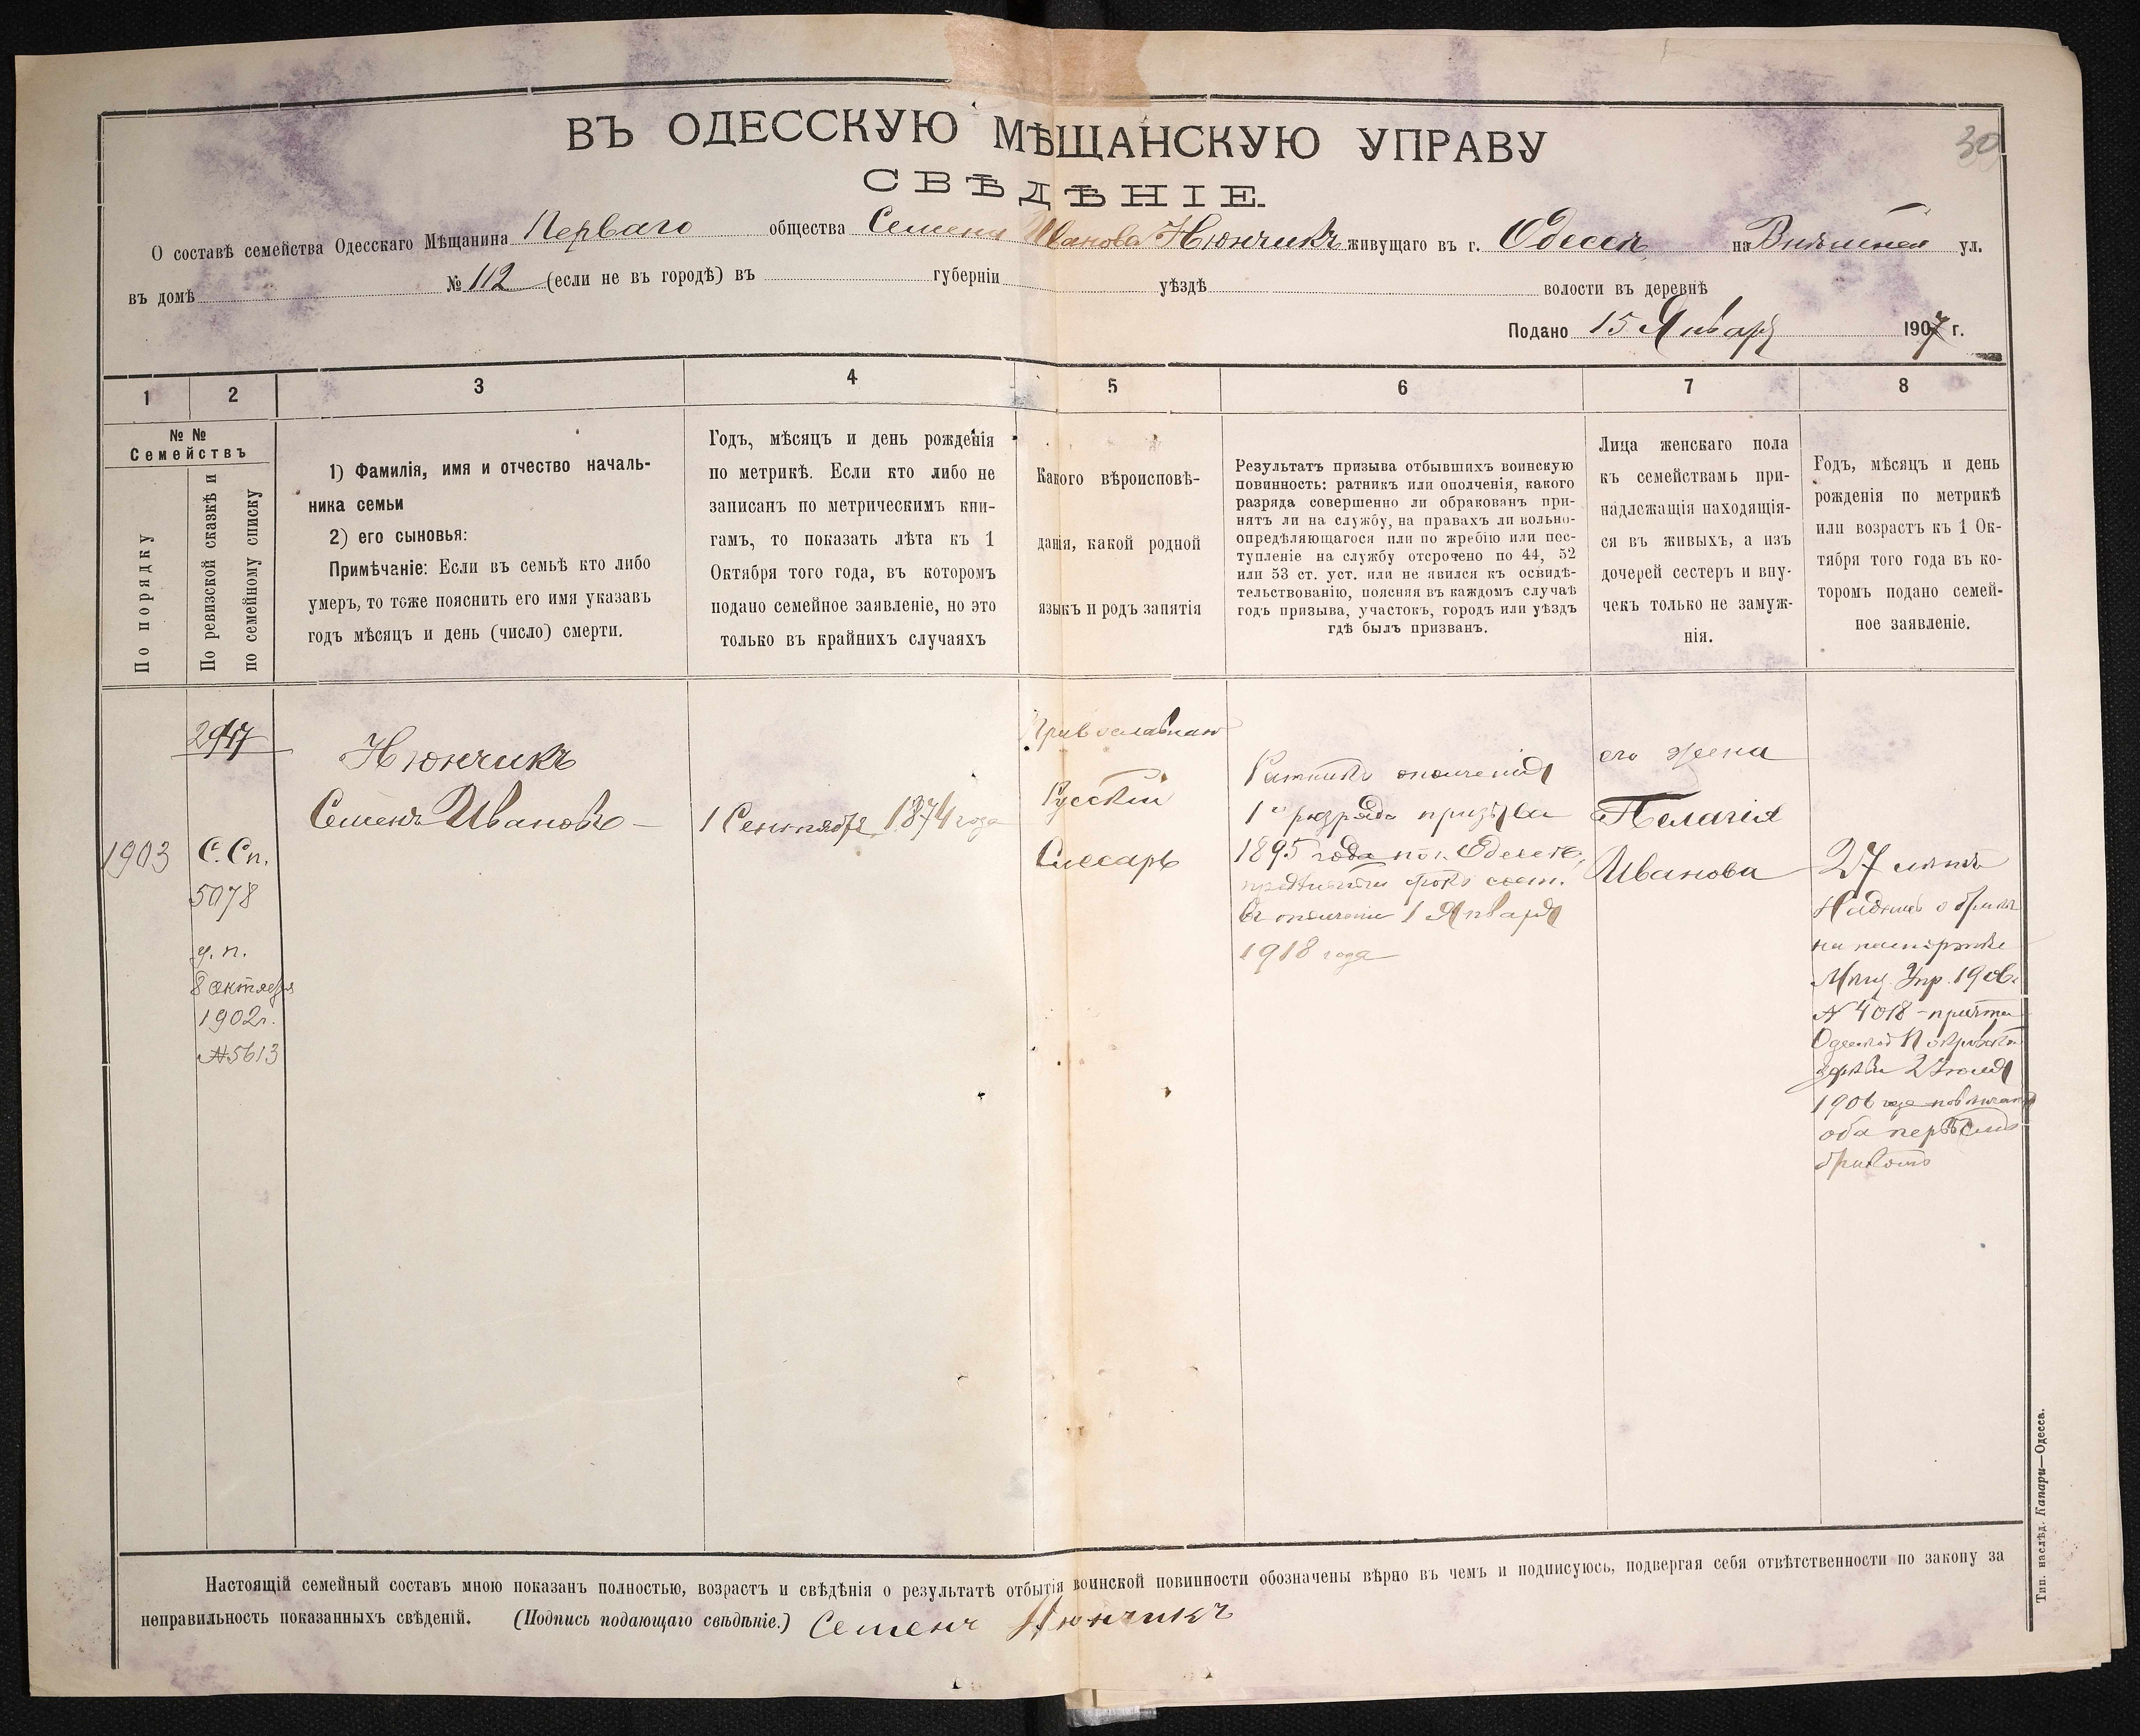 30
ВЪ ОДЕССКУЮ МѢЩАНСКУЮ УПРАВУ
СВѢДѢНІЕ.
О составѣ семейства Одесскаго Мѣщанина Перваго общества Семена Иванова Нюнчикъ живущаго въ г. Одессѣ на Внѣшней ул.
въ домѣ № 112 (если не въ городѣ) въ губерніи уѣздѣ волости въ деревнѣ
Подано 15 Января 1907 г.
1 2 3 4 5 6 7 8
№ №
Семействъ
По порядку
По ревизской сказкѣ и
по семейному списку
1) Фамилія, имя и отчество началь-
ника семьи
2) его сыновья:
Примѣчаніе: Если въ семьѣ кто либо
умеръ, то тоже пояснить его имя указавъ
годъ мѣсяцъ и день (число) смерти.
Годъ, мѣсяцъ и день рожденія
по метрикѣ. Если кто либо не
записанъ по метрическимъ кни-
гамъ, то показать лѣта къ 1
Октября того года, въ которомъ
подано семейное заявленіе, но это
только въ крайнихъ случаяхъ
Какого вѣроисповѣ-
данія, какой родной
языкъ и родъ занятія
Результатъ призыва отбывшихъ воинскую
повинность: ратникъ или ополченія, какого
разряда совершенно ли обракованъ при-
нятъ ли на службу, на правахъ ли вольно-
опредѣляющагося или по жребію или пос-
тупленіе на службу отсрочено по 44, 52
или 53 ст. уст. или не явился къ освидѣ-
тельствованію, поясняя въ каждомъ случаѣ
годъ призыва, участокъ, городъ или уѣздъ
гдѣ былъ призванъ.
Лица женскаго пола
къ семействамъ при-
надлежащія находящія-
ся въ живыхъ, а изъ
дочерей сестеръ и вну-
чекъ только не замуж-
нія.
Годъ, мѣсяцъ и день
рожденія по метрикѣ
или возрастъ къ 1 Ок-
тября того года въ ко-
торомъ подано семей-
ное заявленіе.
1903
С. Сп.
5078
8 октября
1902г.
№5613
Нюнчикъ
Семенъ Ивановъ
1 Сентября 1874 года
Православнаго
Русскій
Слесарь
Ратникъ ополченія
1го разряда призыва
1895 года по г. Одессѣ,
срокъ сост.
въ ополченіи 1 Января
1918 года
его жена
Пелагія
Иванова
27 лѣтъ
Надпись о бракѣ
на паспортѣ
Мѣщ. Упр. 1906г.
№ 4018 - причта
Одесской Покровской
церкви
1906 года повѣнчаны
оба первымъ
бракомъ
Настоящій семейный составъ мною показанъ полностью, возрастъ и свѣдѣнія о результатѣ отбытія воинской повинности обозначены вѣрно въ чемъ и подписуюсь, подвергая себя отвѣтственности по закону за
неправильность показанныхъ свѣденій. (Подпись подающаго свѣдѣніе.) Семенъ Нюнчикъ
Тип. наслѣд. Капари—Одесса.